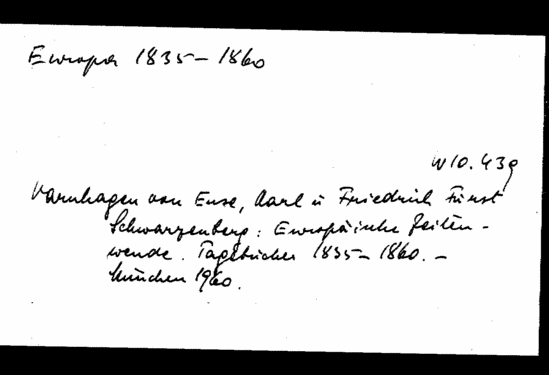 Europa 1835–1860
W 10.439
Varnhagen von Ense, Karl u Friedrich Fürst
Schwarzenberg: Europäische Zeiten-
wende. Tagebücher 1835–1860. –
München 1960.